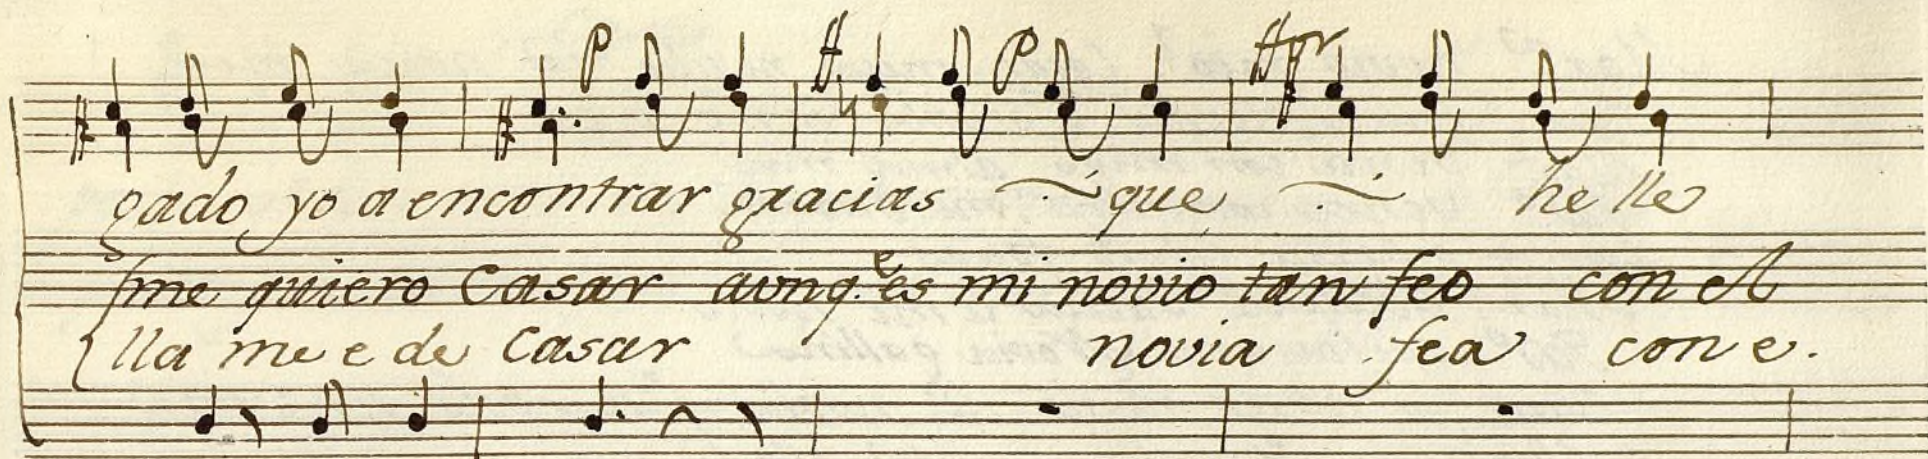 P A P Apr
gado yo a encontrar gracias ~ que ~ he lle
me quiero Casar aunq.e es mi novio tan feo con el
lla me e de Casar novia fea con e.